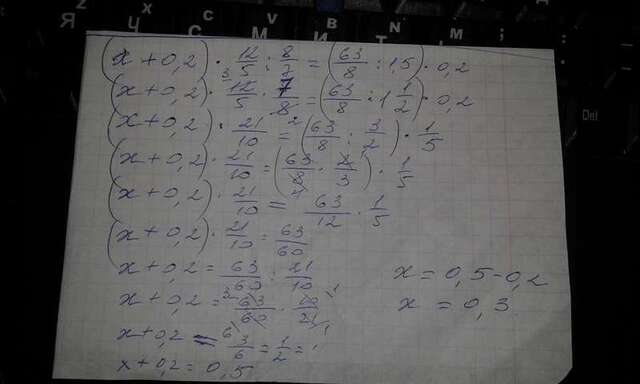 Я Z Ч X С C М V И B Т N М ; :
Del
(x + 0,2) · 12/5 : 8/7 = (63/8 : 1,5) · 0,2
(x + 0,2) · 12/5 · 7/8 = (63/8 : 1 1/2) · 0,2
(x + 0,2) · 21/10 = (63/8 : 3/2) · 1/5
(x + 0,2) · 21/10 = (63/8 · 2/3) · 1/5
(x + 0,2) · 21/10 = 63/12 · 1/5
(x + 0,2) · 21/10 = 63/60
x + 0,2 = 63/60 : 21/10
x + 0,2 = 63/60 · 10/21
x + 0,2 = 3/6 = 1/2 =
x + 0,2 = 0,5
x = 0,5 - 0,2
x = 0,3